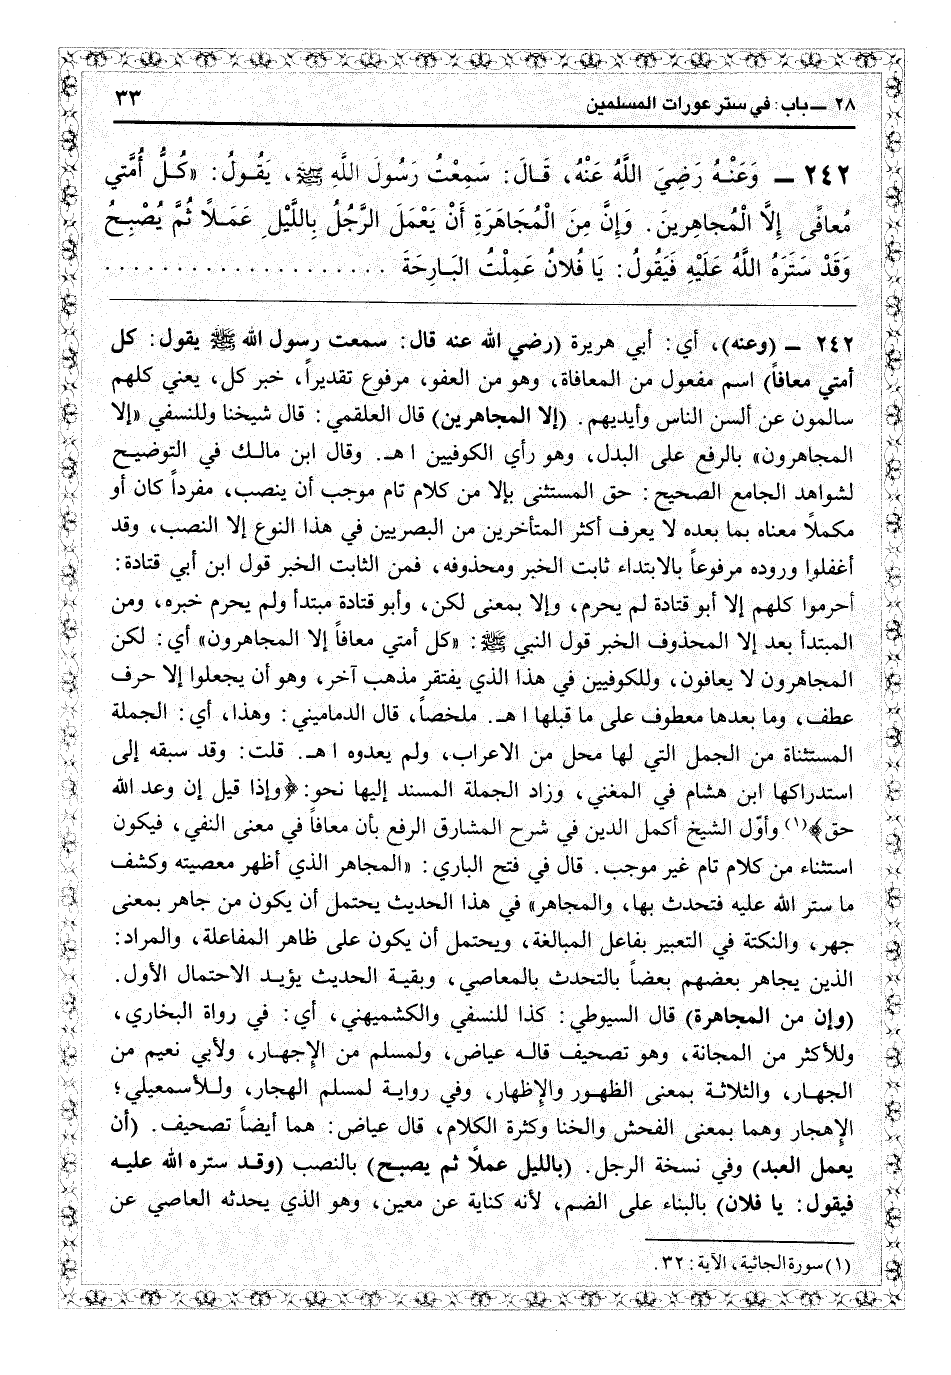 ٢٨ ـ باب: في ستر عورات المسلمين ٣٣
٢٤٢ ـ وَعَنْهُ رَضِيَ اللَّهُ عَنْهُ، قَالَ: سَمِعْتُ رَسُولَ اللَّهِ ﷺ، يَقُولُ: «كُلُّ أُمَّتي
مُعافًى إِلَّا الْمُجاهِرينَ. وَإِنَّ مِنَ الْمُجَاهَرَةِ أَنْ يَعْمَلَ الرَّجُلُ بِاللَّيْلِ عَمَلًا ثُمَّ يُصْبِحُ
وَقَدْ سَتَرَهُ اللَّهُ عَلَيْهِ فَيَقُولُ: يَا فُلانُ عَمِلْتُ البَارِحَةَ ....................
٢٤٢ ـ (وعنه)، أي: أبي هريرة (رضي الله عنه قال: سمعت رسول الله ﷺ يقول: كل
أمتي معافاً) اسم مفعول من المعافاة، وهو من العفو، مرفوع تقديراً، خبر كل، يعني كلهم
سالمون عن ألسن الناس وأيديهم. (إلا المجاهرين) قال العلقمي: قال شيخنا وللنسفي «إلا
المجاهرون» بالرفع على البدل، وهو رأي الكوفيين اهـ. وقال ابن مالك في التوضيح
لشواهد الجامع الصحيح: حق المستثنى بإلا من كلام تام موجب أن ينصب، مفرداً كان أو
مكملاً معناه بما بعده لا يعرف أكثر المتأخرين من البصريين في هذا النوع إلا النصب، وقد
أغفلوا وروده مرفوعاً بالابتداء ثابت الخبر ومحذوفه، فمن الثابت الخبر قول ابن أبي قتادة:
أحرموا كلهم إلا أبو قتادة لم يحرم، وإلا بمعنى لكن، وأبو قتادة مبتدأ ولم يحرم خبره، ومن
المبتدأ بعد إلا المحذوف الخبر قول النبي ﷺ: «كل أمتي معافاً إلا المجاهرون» أي: لكن
المجاهرون لا يعافون، وللكوفيين في هذا الذي يفتقر مذهب آخر، وهو أن يجعلوا إلا حرف
عطف، وما بعدها معطوف على ما قبلها اهـ. ملخصاً، قال الدماميني: وهذا، أي: الجملة
المستثناة من الجمل التي لها محل من الاعراب، ولم يعدوه اهـ. قلت: وقد سبقه إلى
استدراكها ابن هشام في المغني، وزاد الجملة المسند إليها نحو: ﴿وإذا قيل إن وعد الله
حق﴾(١) وأوّل الشيخ أكمل الدين في شرح المشارق الرفع بأن معافاً في معنى النفي، فيكون
استثناء من كلام تام غير موجب. قال في فتح الباري: «المجاهر الذي أظهر معصيته وكشف
ما ستر الله عليه فتحدث بها، والمجاهر» في هذا الحديث يحتمل أن يكون من جاهر بمعنى
جهر، والنكتة في التعبير بفاعل المبالغة، ويحتمل أن يكون على ظاهر المفاعلة، والمراد:
الذين يجاهر بعضهم بعضاً بالتحدث بالمعاصي، وبقية الحديث يؤيد الاحتمال الأول.
(وإن من المجاهرة) قال السيوطي: كذا للنسفي والكشميهني، أي: في رواة البخاري،
وللأكثر من المجانة، وهو تصحيف قاله عياض، ولمسلم من الإجهار، ولأبي نعيم من
الجهار، والثلاثة بمعنى الظهور والإظهار، وفي رواية لمسلم الهجار، وللأسمعيلي؛
الإهجار وهما بمعنى الفحش والخنا وكثرة الكلام، قال عياض: هما أيضاً تصحيف. (أن
يعمل العبد) وفي نسخة الرجل. (بالليل عملاً ثم يصبح) بالنصب (وقد ستره الله عليه
فيقول: يا فلان) بالبناء على الضم، لأنه كناية عن معين، وهو الذي يحدثه العاصي عن
(١) سورة الجاثية، الآية: ٣٢.